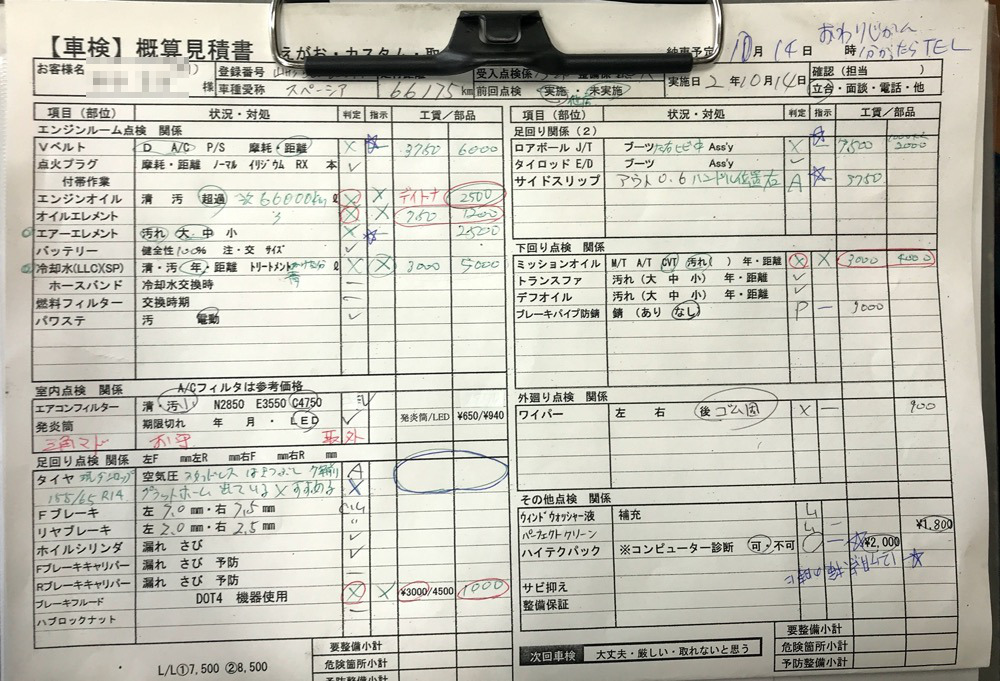 【車検】概算見積書 えがお・カスタム・取
納車予定 10月14日 時 おわりじかん 分かったらTEL
お客様名 様
登録番号 山形
車種愛称 スペーシア
66175km
受入点検係
前回点検 実施・未実施 他店
実施日 2年10月14日
確認(担当 )
立合・面談・電話・他
項目(部位) 状況・対処 判定 指示 工賃/部品
エンジンルーム点検 関係
Vベルト D A/C P/S 摩耗・距離 × ☆ 3750 6000
点火プラグ 摩耗・距離 ノーマル イリジウム RX 本 ✓
付帯作業
エンジンオイル 清 汚 超過 次66000km ℓ × × デイトナ 2500
オイルエレメント 〃 × × 750 1200
エアーエレメント 汚れ 大 中 小 × ☆ 2500
バッテリー 健全性100% 注・交 サイズ ✓ −
冷却水(LLC)(SP) 清・汚・年・距離 トリートメント × × 3000 5000
ホースバンド 冷却水交換時 −
燃料フィルター 交換時期 −
パワステ 汚 電動 ✓
室内点検 関係 A/Cフィルタは参考価格
エアコンフィルター 清・汚 小 N2850 E3550 C4750 ✓
発炎筒 期限切れ 年 月・LED ✓ 発炎筒/LED ¥650/¥940
三角マド お守 取外
足回り点検 関係 左F ㎜左R ㎜右F ㎜右R ㎜
タイヤ 空気圧 スタッドレス A
155/65R14 プラットホーム 出ている × すすめる ×
Fブレーキ 左7.0㎜・右7.5㎜
リヤブレーキ 左2.0㎜・右2.5㎜ 〃
ホイルシリンダ 漏れ さび ✓
Fブレーキキャリパー 漏れ さび 予防 −
Rブレーキキャリパー 漏れ さび 予防 −
ブレーキフルード DOT4 機器使用 × × ¥3000/4500 1000
ハブロックナット −
L/L①7,500 ②8,500
要整備小計
危険箇所小計
予防整備小計
項目(部位) 状況・対処 判定 指示 工賃/部品
足回り関係(2)
ロアボール J/T ブーツ 左右ヒビ中 Ass'y × ☆ 7500 2000
タイロッド E/D ブーツ Ass'y ✓
サイドスリップ アウト0.6 ハンドル位置左 A ☆ 3750
下回り点検 関係
ミッションオイル M/T A/T CVT 汚れ( ) 年・距離 × × 3000 4000
トランスファ 汚れ(大 中 小) 年・距離 ✓
デフオイル 汚れ(大 中 小) 年・距離 ✓
ブレーキパイプ防錆 錆(あり なし) P − 3000
外廻り点検 関係
ワイパー 左 右 後 ゴム ×  − 900
その他点検 関係
ウィンドウォッシャー液 補充 L
パーフェクトクリーン L − ¥1,800
ハイテクパック ※コンピューター診断 可・不可 ○ − ☆ ¥2,000
☆12ヶ月点検の時に
サビ抑え
整備保証
次回車検 大丈夫・厳しい・取れないと思う
要整備小計
危険箇所小計
予防整備小計